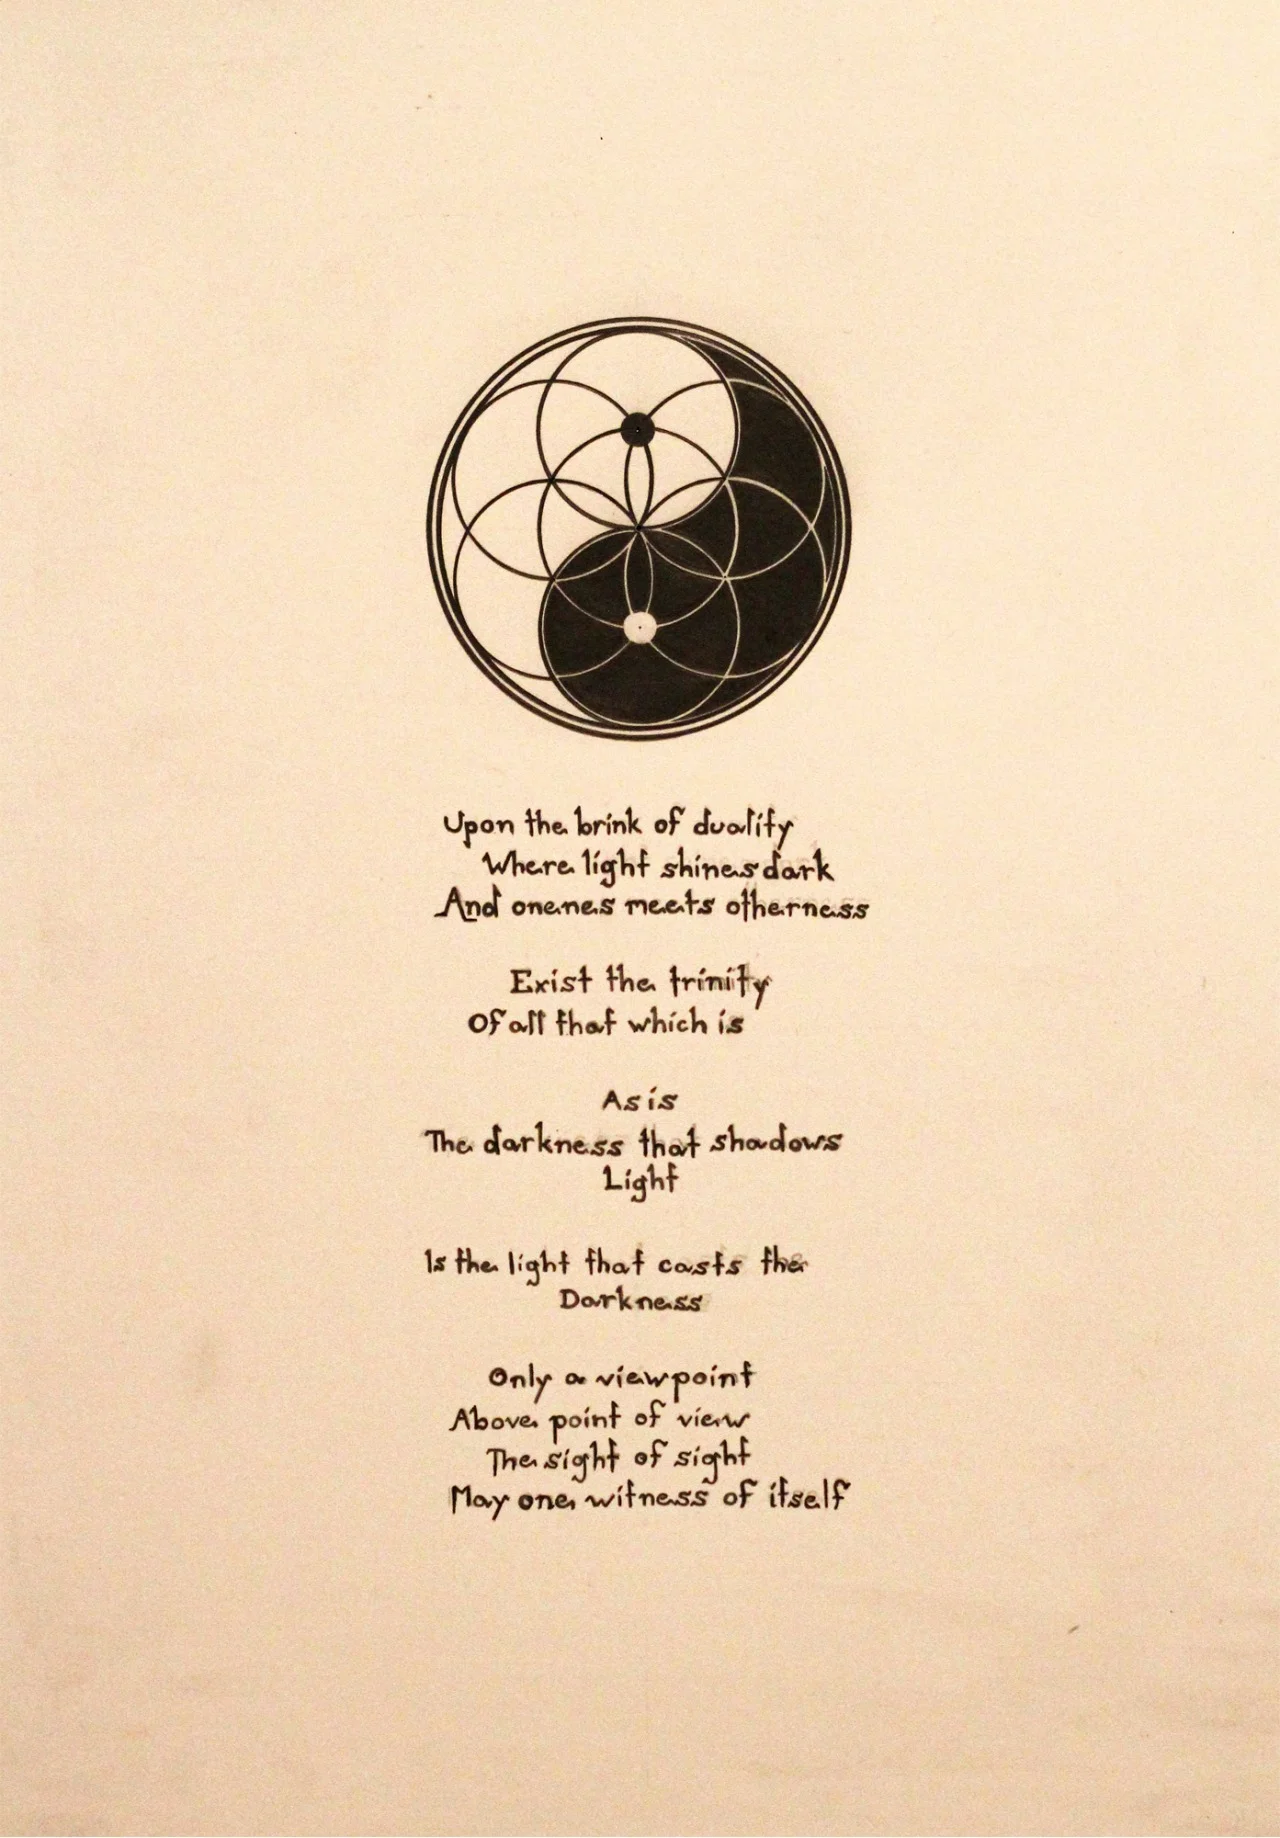 Upon the brink of duality
Where light shines dark
And onenes meets otherness
Exist the trinity
Of all that which is
As is
The darkness that shadows
Light
Is the light that casts the
Darkness
Only a viewpoint
Above point of view
The sight of sight
May one witness of itself